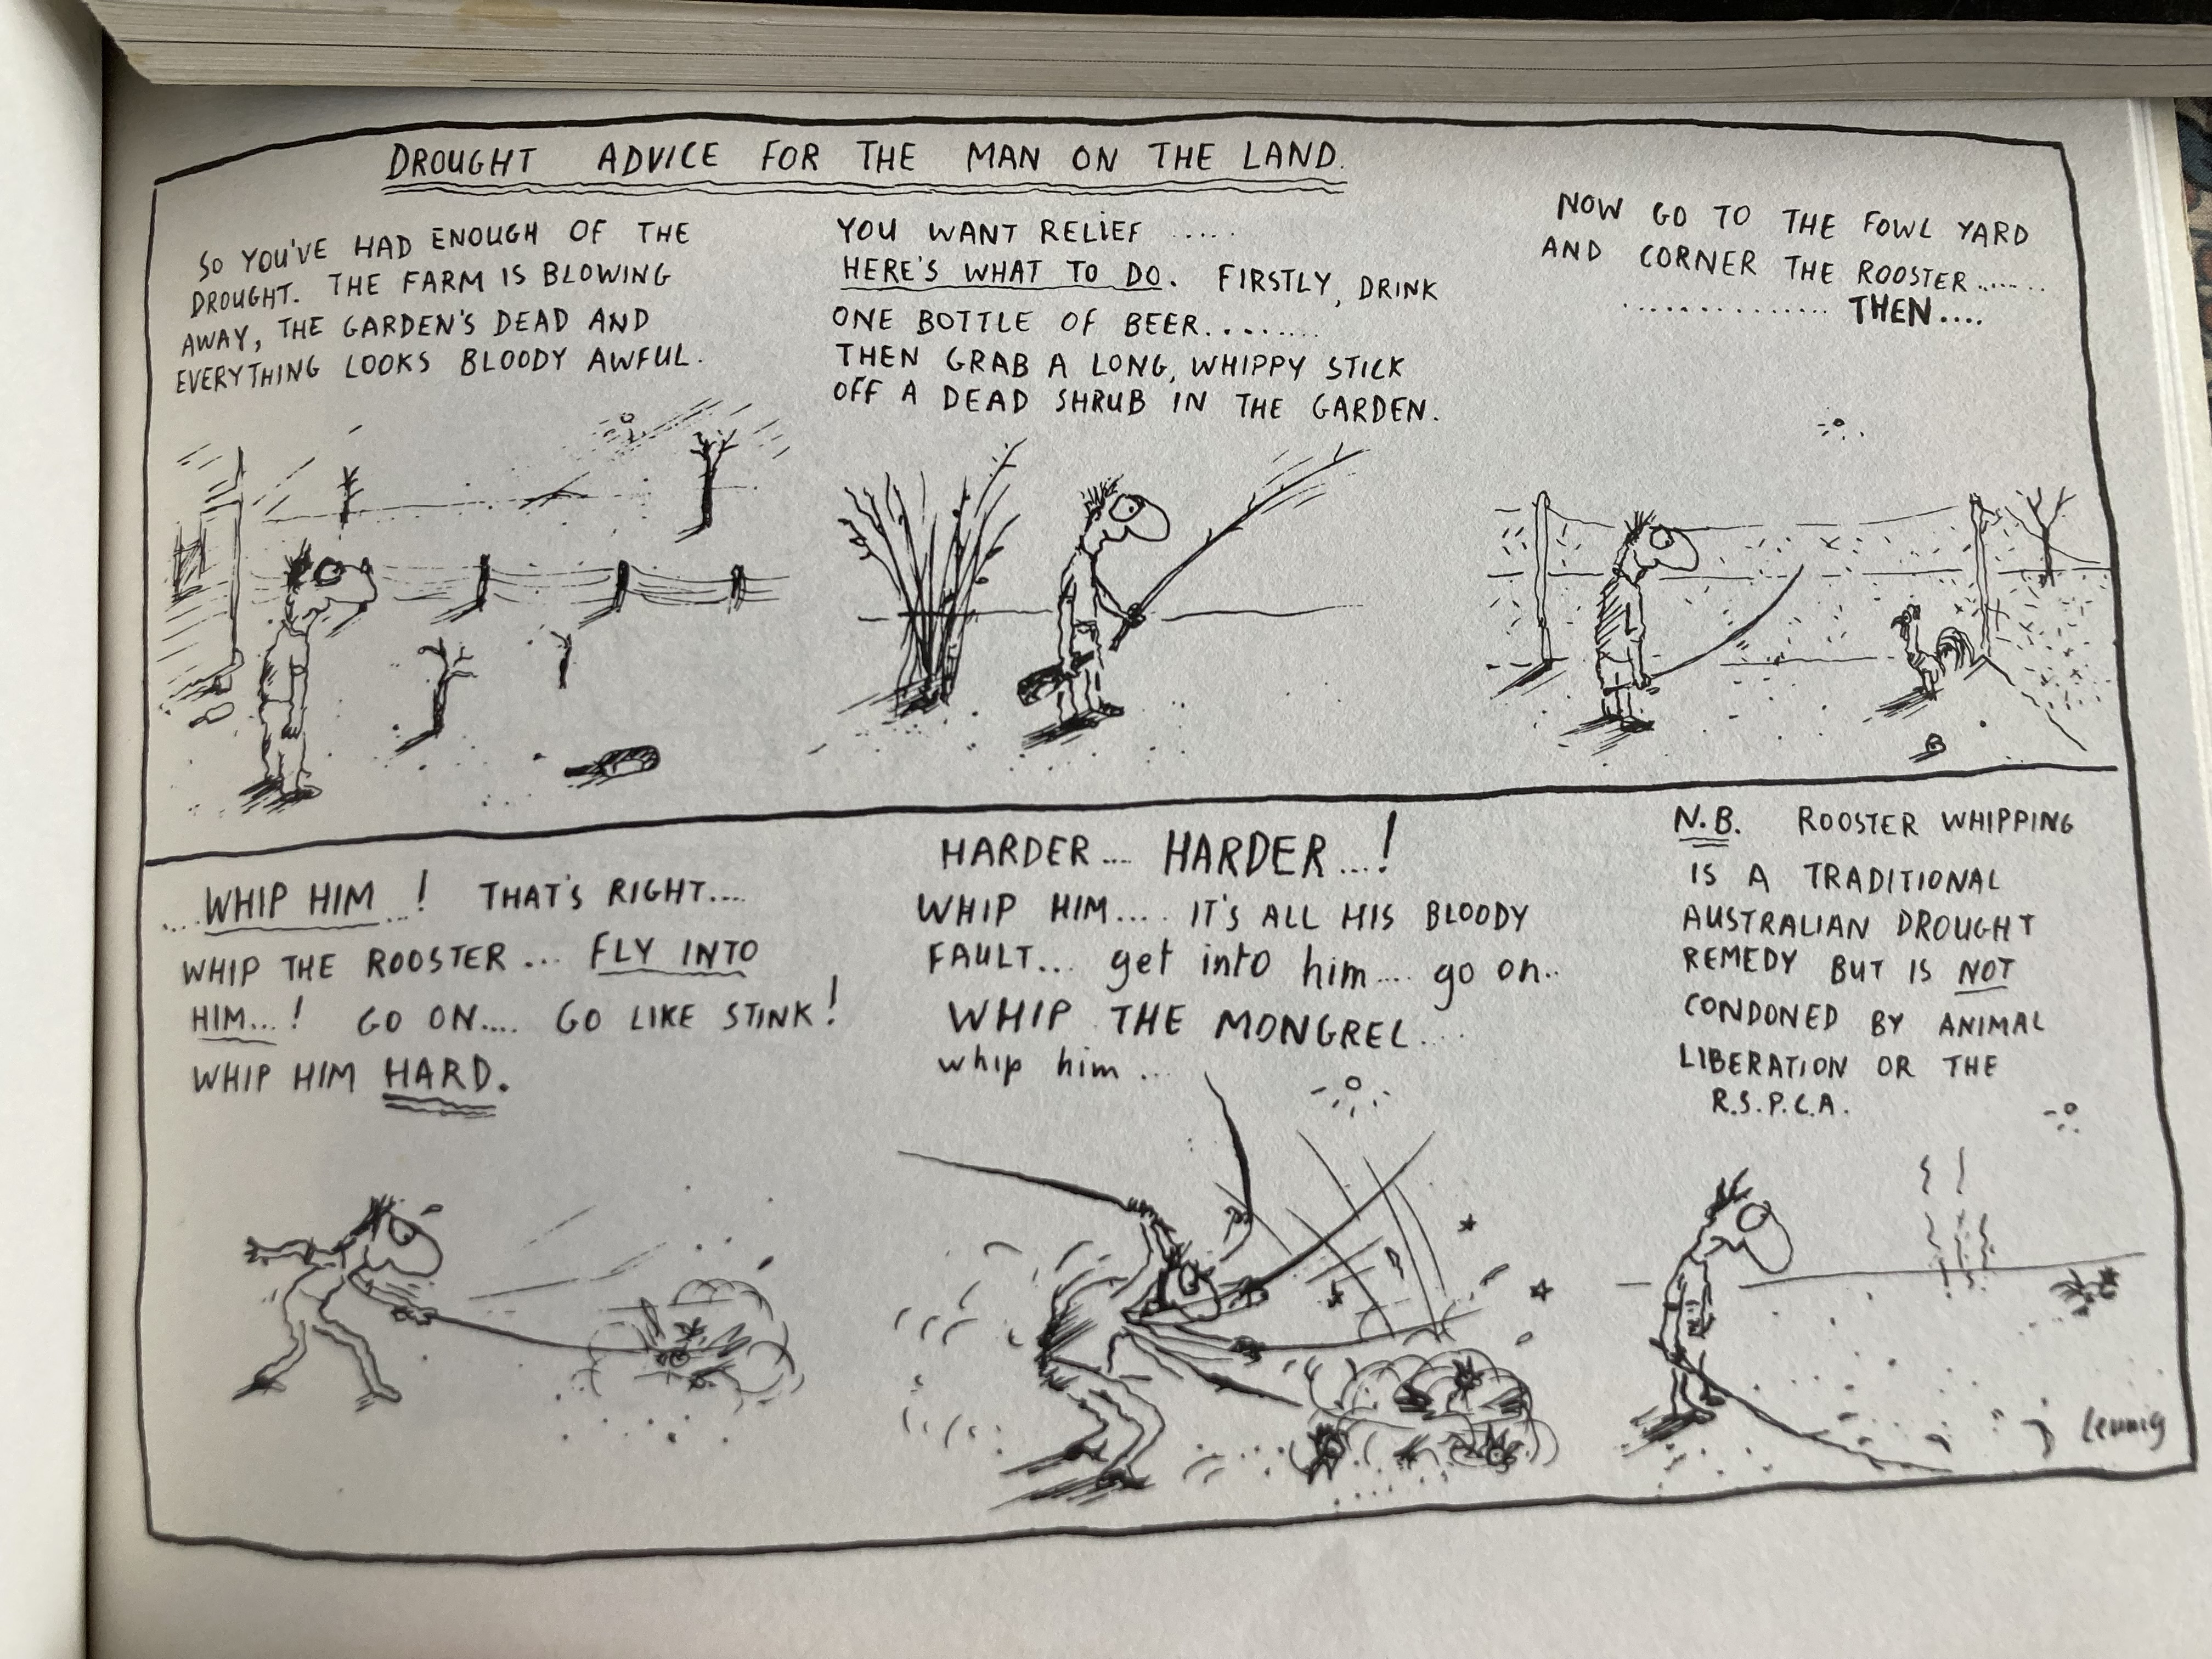 DROUGHT ADVICE FOR THE MAN ON THE LAND.
SO YOU'VE HAD ENOUGH OF THE
DROUGHT. THE FARM IS BLOWING
AWAY, THE GARDEN'S DEAD AND
EVERYTHING LOOKS BLOODY AWFUL.
YOU WANT RELIEF .....
HERE'S WHAT TO DO. FIRSTLY, DRINK
ONE BOTTLE OF BEER........
THEN GRAB A LONG, WHIPPY STICK
OFF A DEAD SHRUB IN THE GARDEN.
NOW GO TO THE FOWL YARD
AND CORNER THE ROOSTER.......
.............. THEN....
....WHIP HIM...! THAT'S RIGHT....
WHIP THE ROOSTER... FLY INTO
HIM...! GO ON.... GO LIKE STINK!
WHIP HIM HARD.
HARDER.... HARDER...!
WHIP HIM.... IT'S ALL HIS BLOODY
FAULT... get into him.... go on..
WHIP THE MONGREL....
whip him...
N.B. ROOSTER WHIPPING
IS A TRADITIONAL
AUSTRALIAN DROUGHT
REMEDY BUT IS NOT
CONDONED BY ANIMAL
LIBERATION OR THE
R.S.P.C.A.
Leunig